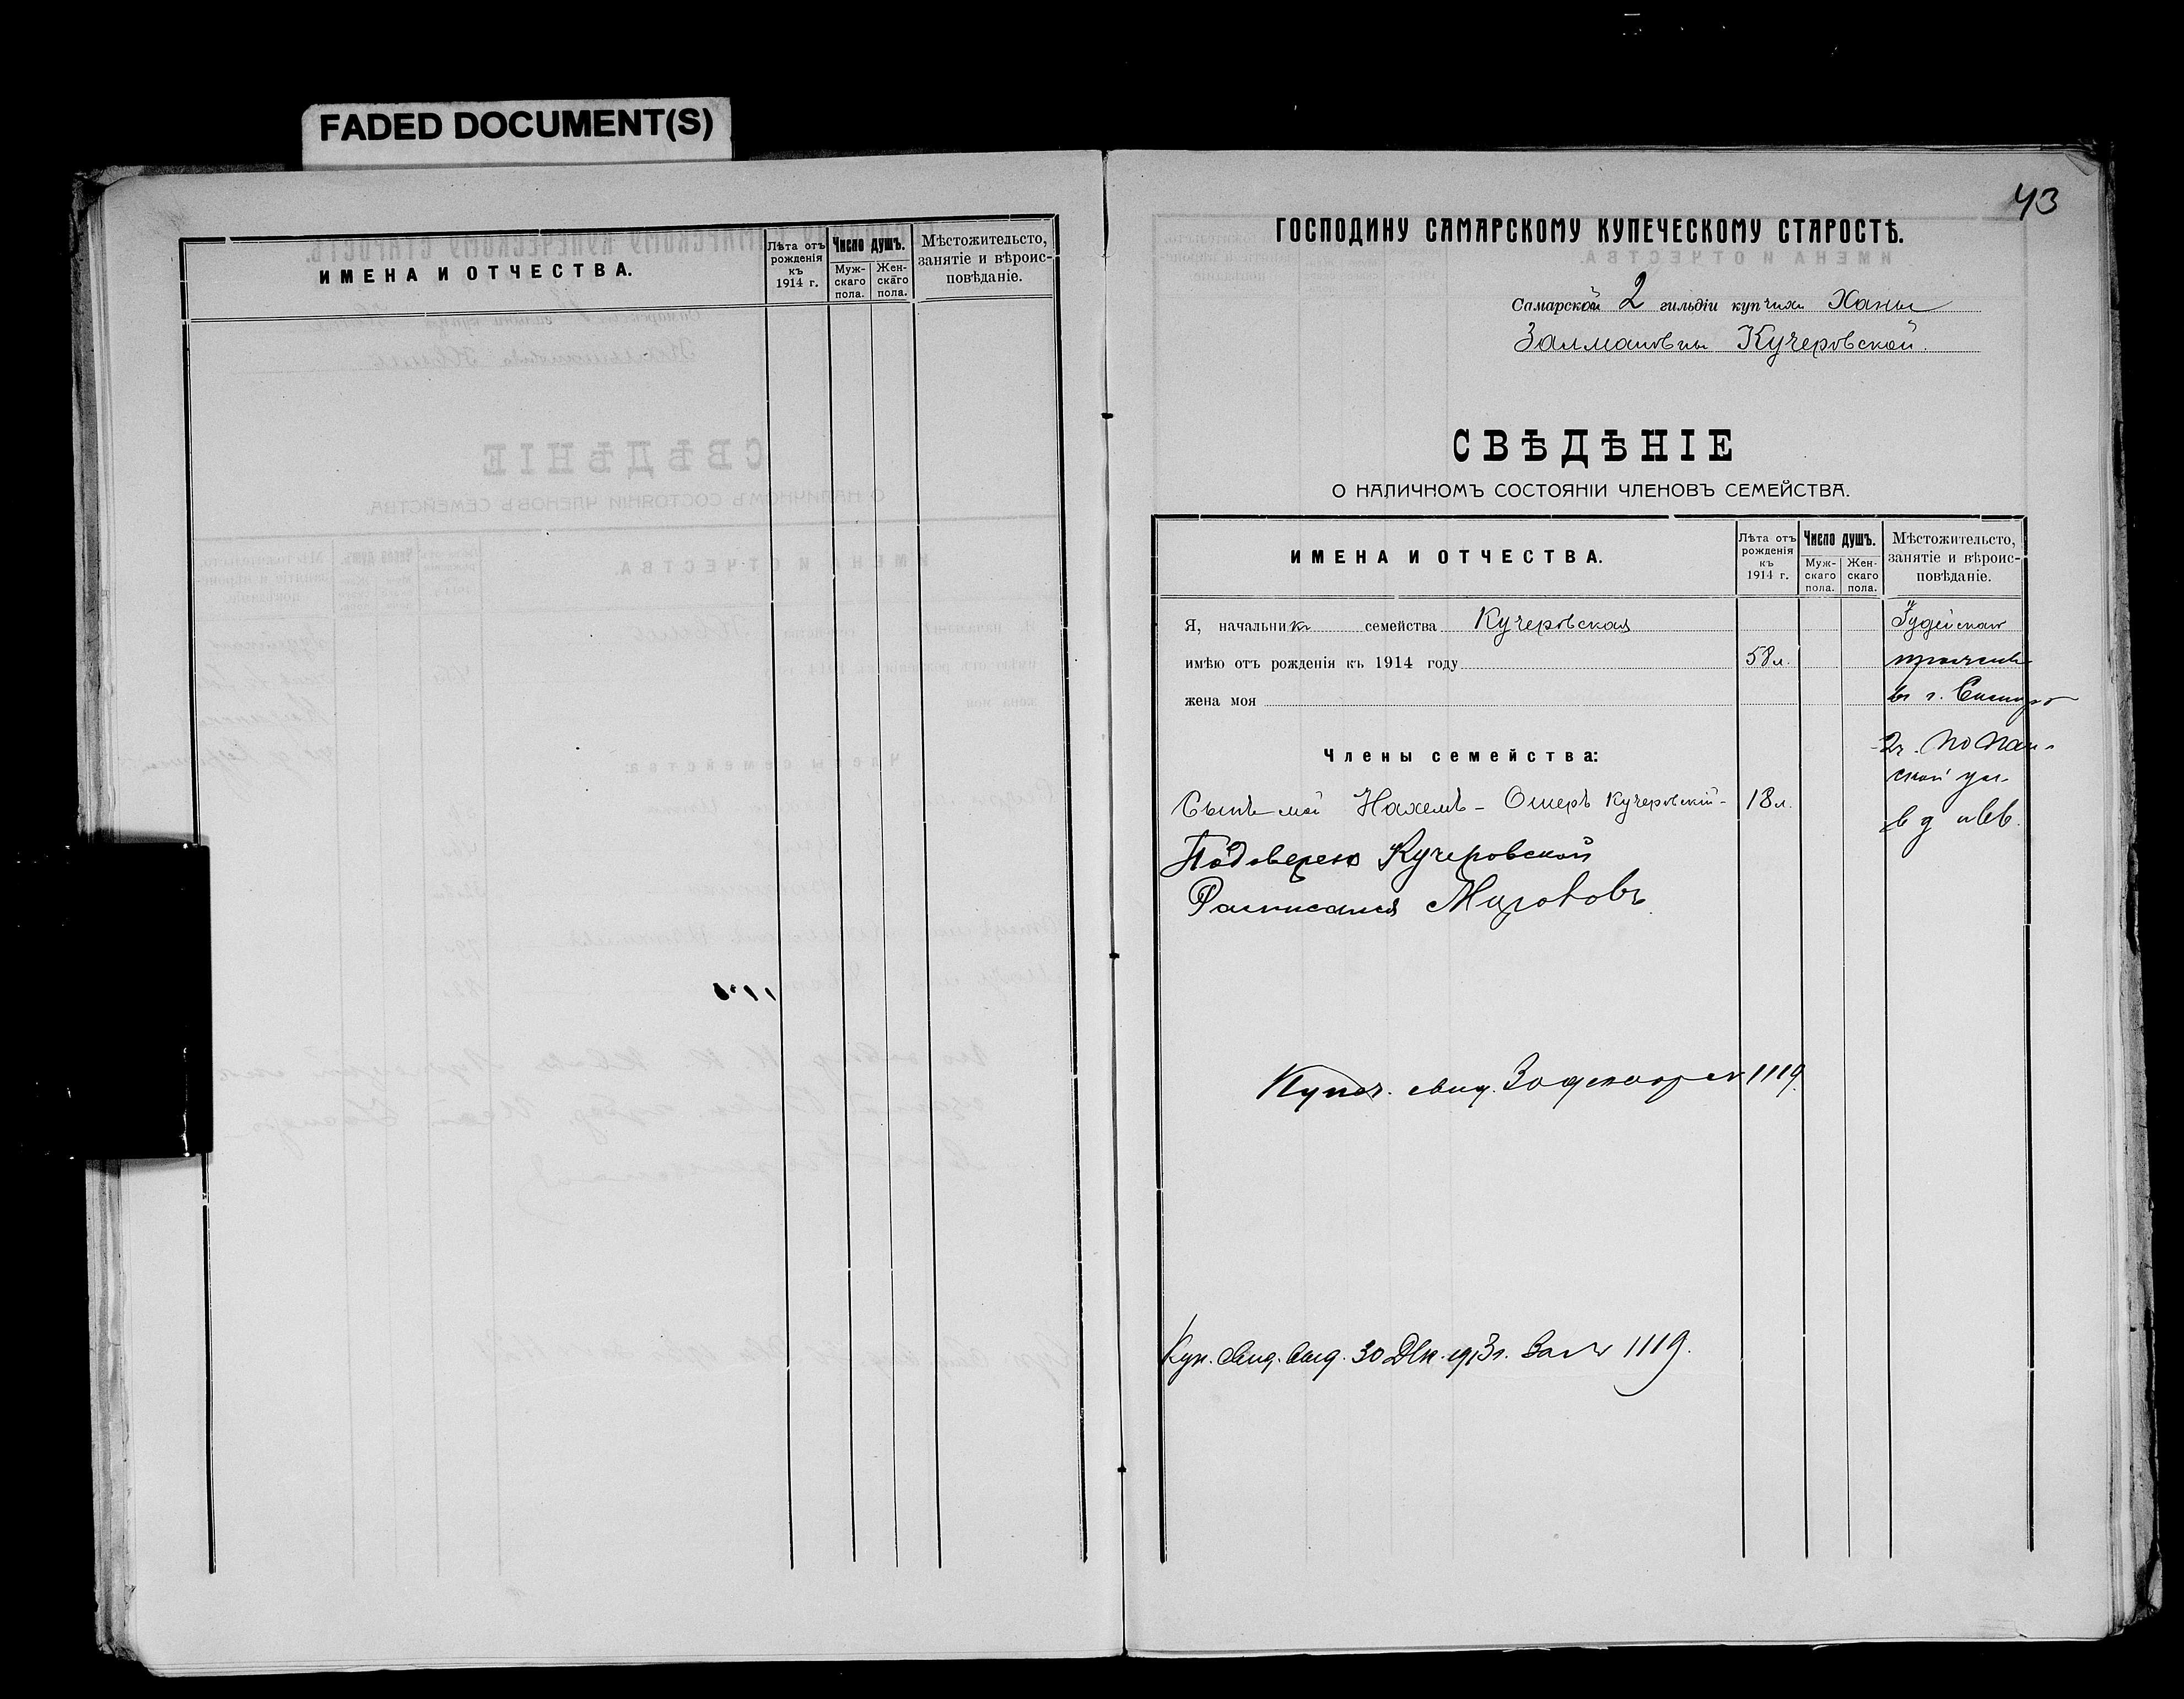 FADED DOCUMENT(S)
ИМЕНА И ОТЧЕСТВА.
Лѣта отъ рожденія къ 1914 г.
Число душъ.
Мужскаго пола.
Женскаго пола.
Мѣстожительсто, занятіе и вѣроисповѣданіе.
43
ГОСПОДИНУ САМАРСКОМУ КУПЕЧЕСКОМУ СТАРОСТѢ.
Самарской 2 гильдіи купчихи Ханы
Залмановны Кучеровской.
СВѢДѢНІЕ
О НАЛИЧНОМЪ СОСТОЯНІИ ЧЛЕНОВЪ СЕМЕЙСТВА.
ИМЕНА И ОТЧЕСТВА.
Лѣта отъ рожденія къ 1914 г.
Число душъ.
Мужскаго пола.
Женскаго пола.
Мѣстожительсто, занятіе и вѣроисповѣданіе.
Я, начальник семейства Кучеровская
имѣю отъ рожденія къ 1914 году 58 л.
жена моя
Іудейская
въ г. Самарѣ
2 ч. по Пан-
ской ул.
в д
Члены семейства:
Сынъ мой Нахемъ-Ошеръ Кучеровскій 18 л.
По доверею Кучеровской
Расписался
Купеч. свид. 30 декабря 1119
Куп. свид. выд. 30 Дек. 1913 г. за № 1119.